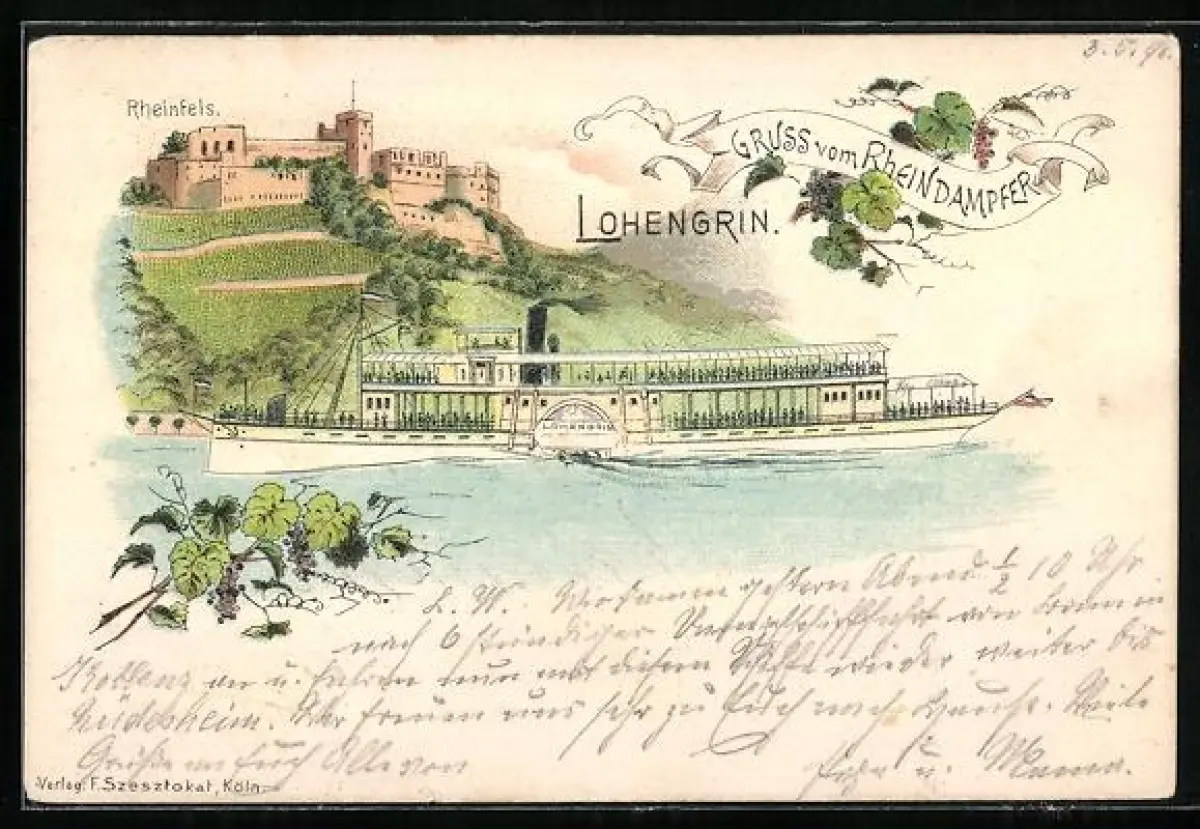 3. 5. 98.
Rheinfels.
GRUSS vom RHEINDAMPFER
LOHENGRIN.
LOHENGRIN
L. W. gestern Abend ½ 10 Uhr
nach 6 stündiger von Bonn in
Koblenz an u. fahren nun mit diesem Schiffe wieder weiter bis
Rüdesheim. Wir freuen uns sehr zu Euch nach Hause. Viele
Grüße an Euch Alle von
u. Mama.
Verlag: F. Szesztokat, Köln.